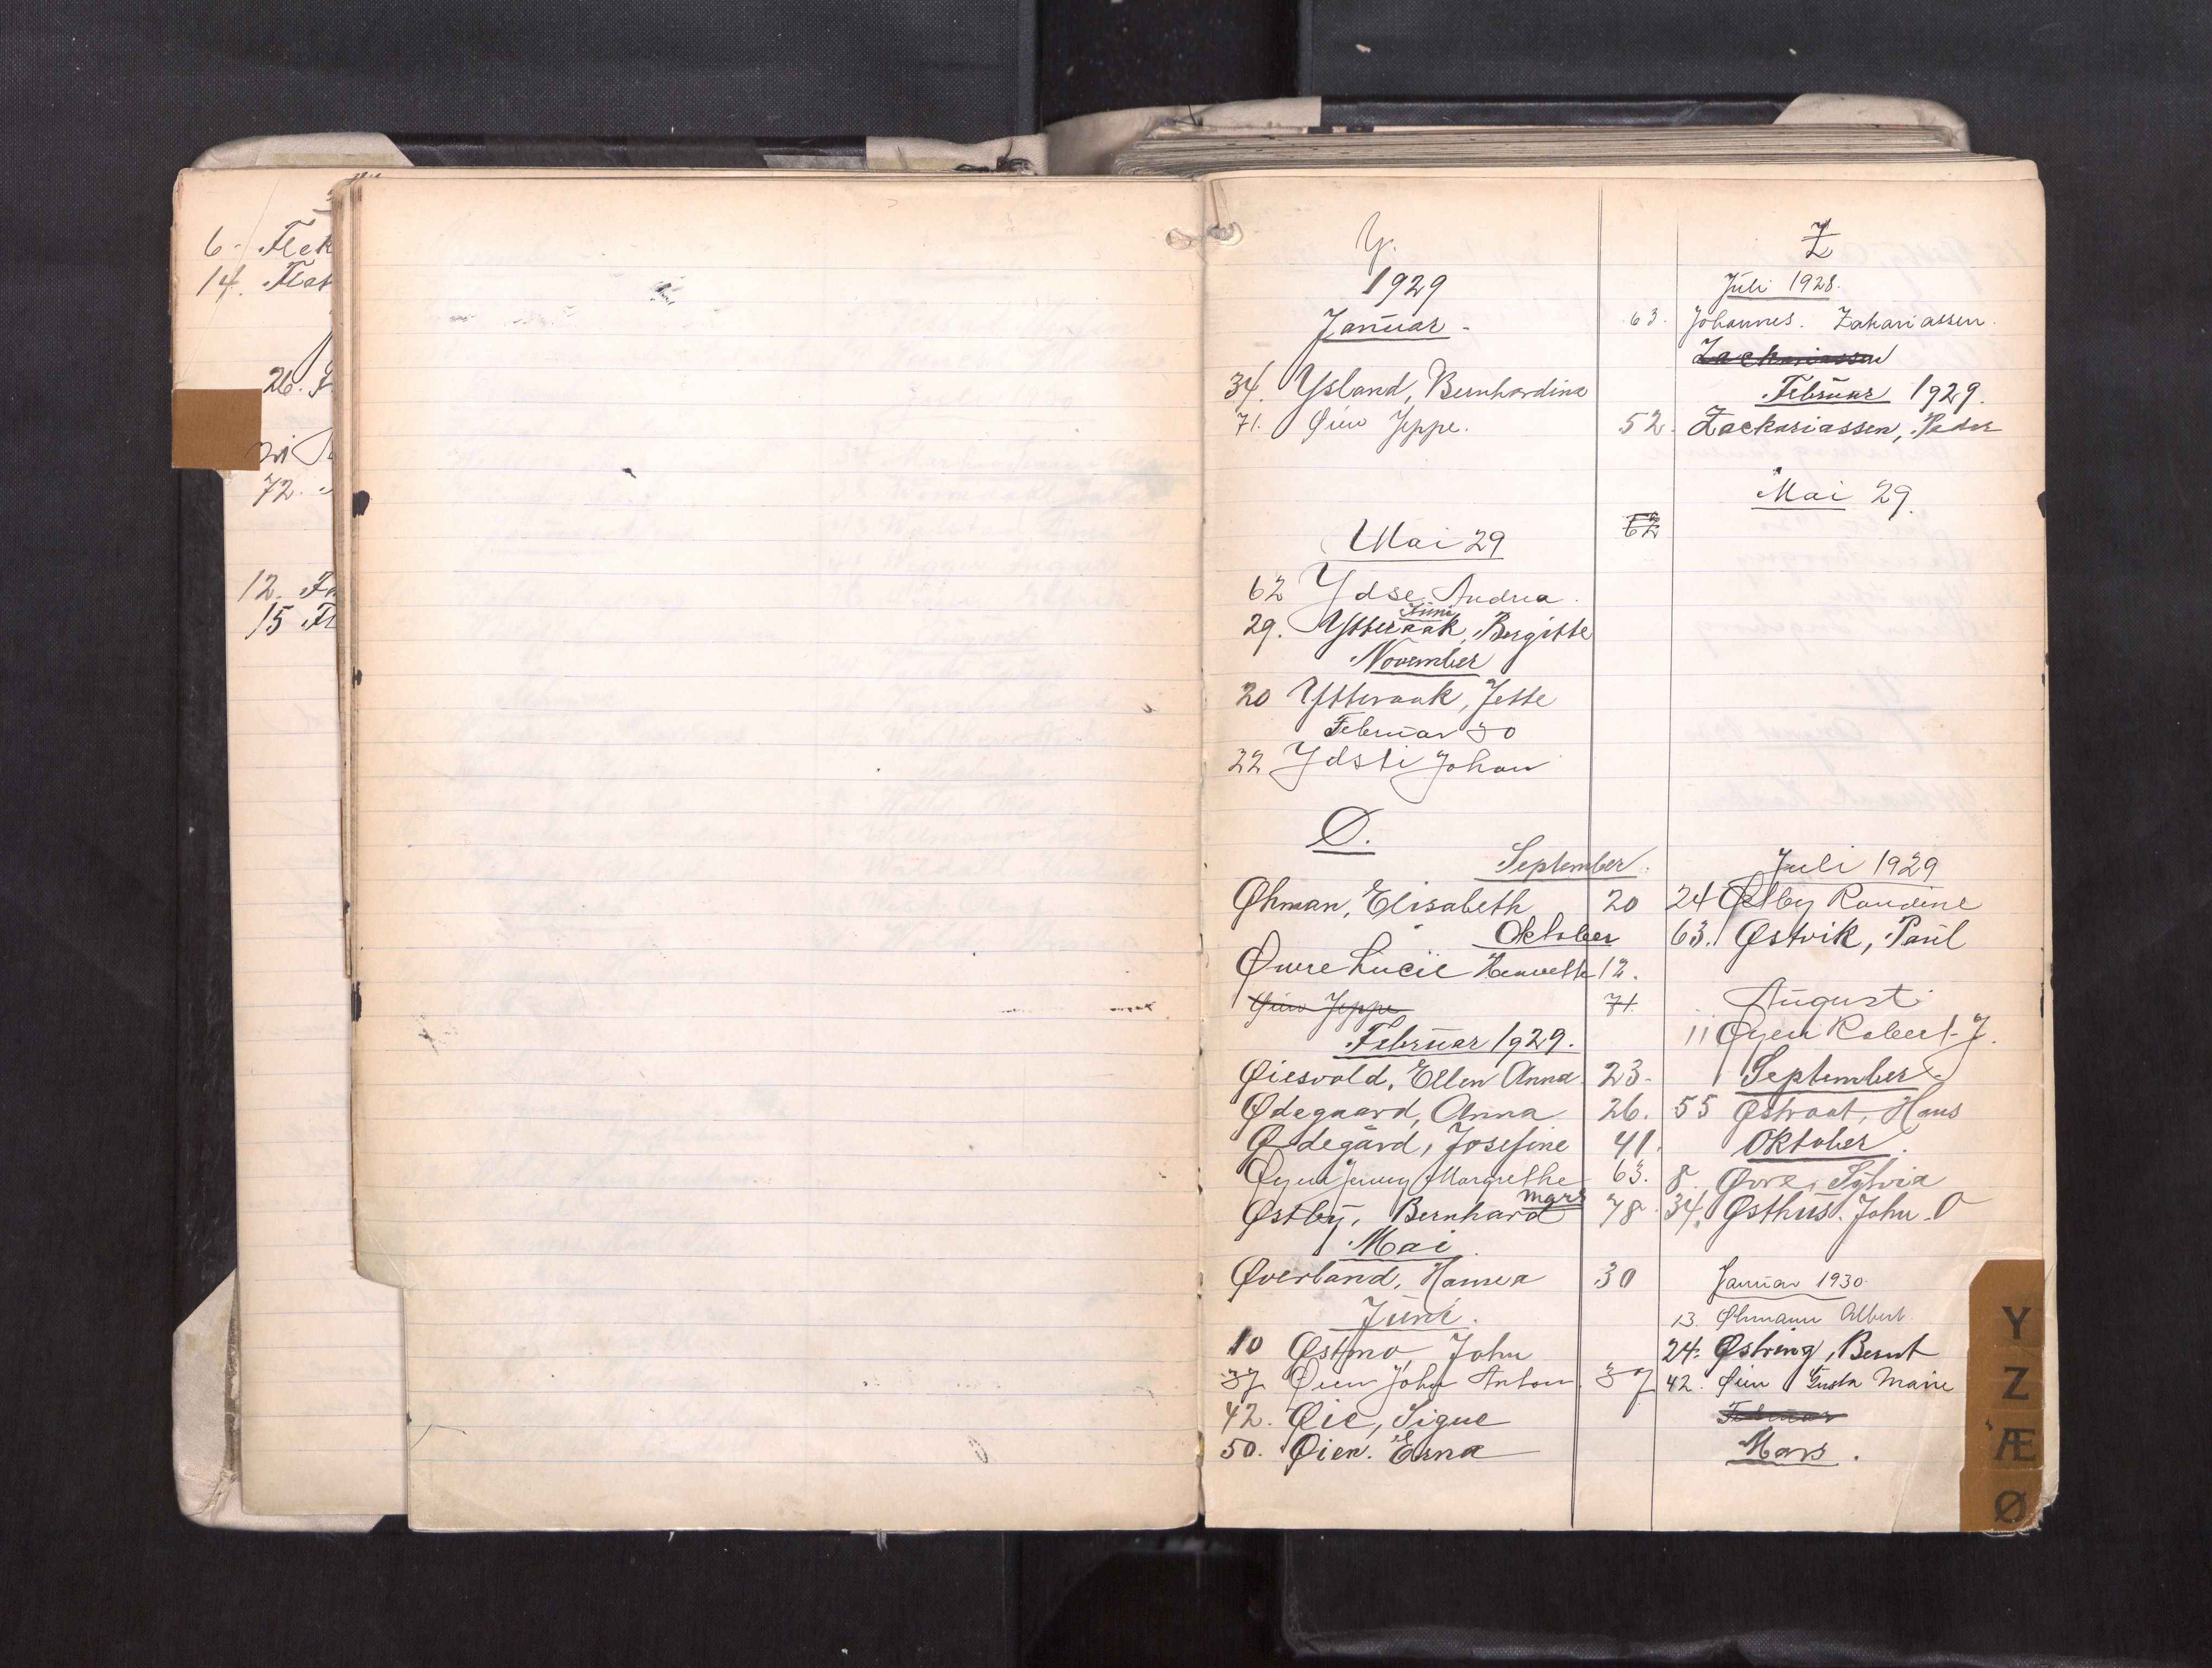 6. Flek
14. Flat
26.
21
72.
12. Fa
15 Fl
Y.
1929
Januar.
34. Ysland, Bernhardine
71. Øien Jeppe.
Mai 29
62 Ydse, Andrea.
Juni
29. Ytteraak, Bergitte
November
20 Ytteraak, Jette
Februar 30
22 Ydsti Johan
Z
Juli 1928.
63. Johannes. Zakariassen.
Zackariassen
Februar 1929.
52. Zackariassen, Peder
Mai 29.
62
Ø.
September.
Øhman, Elisabeth 20
Oktober
Øwre Lucie 12.
Øien Jeppe 71
Februar 1929.
Øiesvold, Ellen Anna 23.
Ødegaard, Anna 26.
Ødegård, Josefine 41.
Øyen Jenny Margrethe 63.
mars
Østby, Bernhard 78.
Mai.
Øverland, Hansea 30
Juni.
10 Østmo, John
37 Øien John Anton 37
42. Øie, Signe
50. Øien. Erna
Juli 1929
24 Østby Randine
63. Østvik, Paul
August
11 Øyen Robert J.
September
55 Østraat, Hans
Oktober.
8. Øvre, Sylvia
34. Østhus. John. O
Januar 1930.
13. Øhmann Albert
24. Østring, Bernt
42. Øien Gusta Marie
Februar
Mars.
Y
Z
Æ
Ø